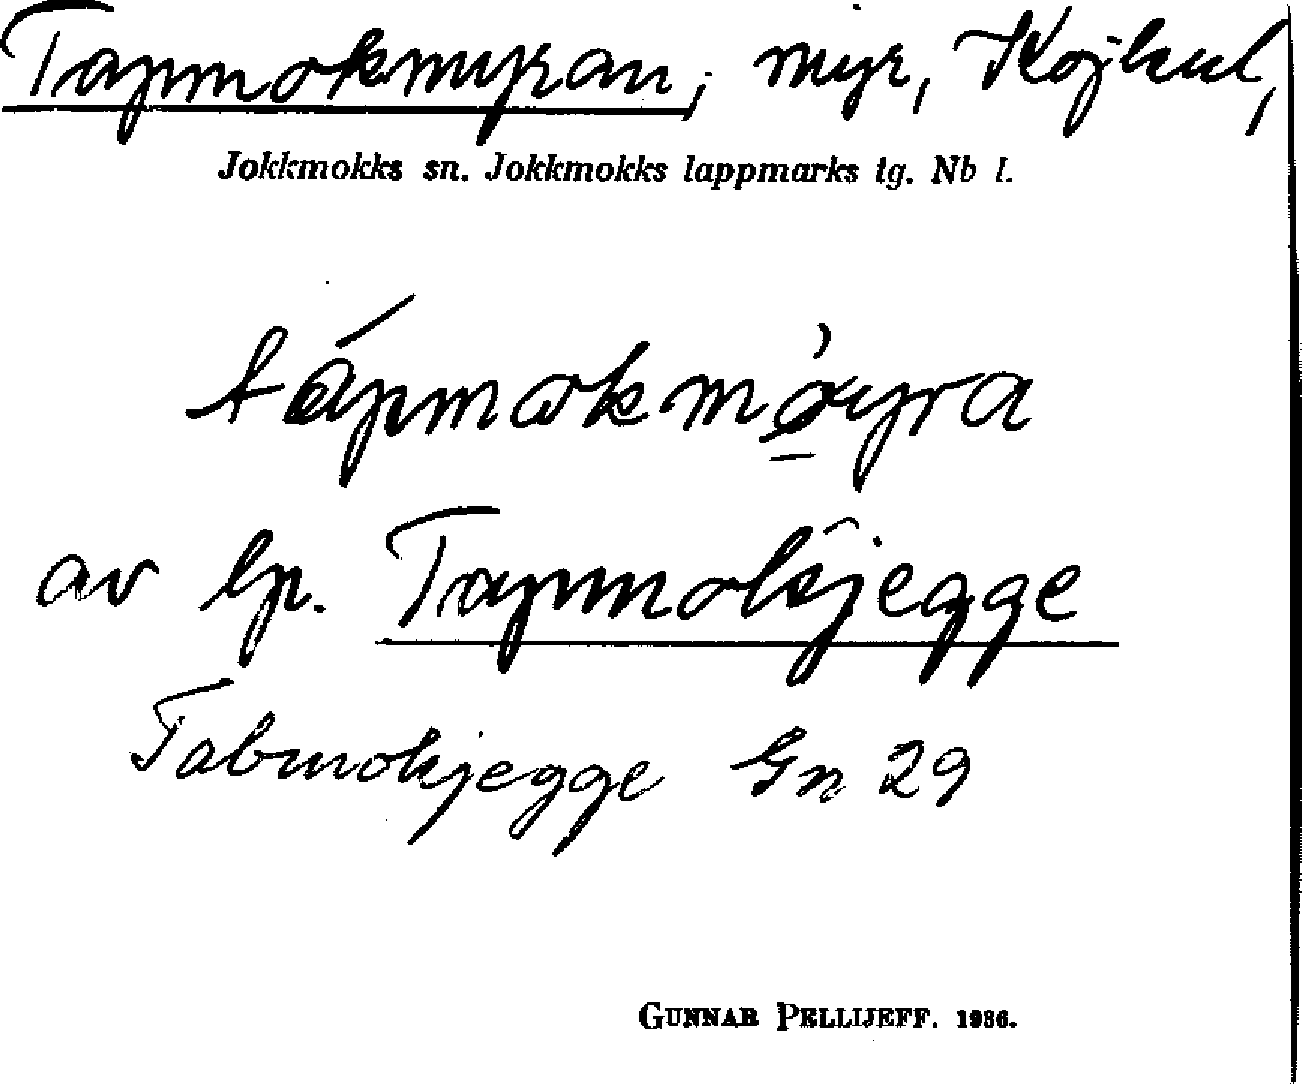 Tapmokmyran, myr, Kojkul,
Jokkmokks sn. Jokkmokks lappmarks tg. Nb l.
av lp. Tapmokjegge
Tabmokjegge Gn 29
GUNNAR PELLIJEFF. 1936.